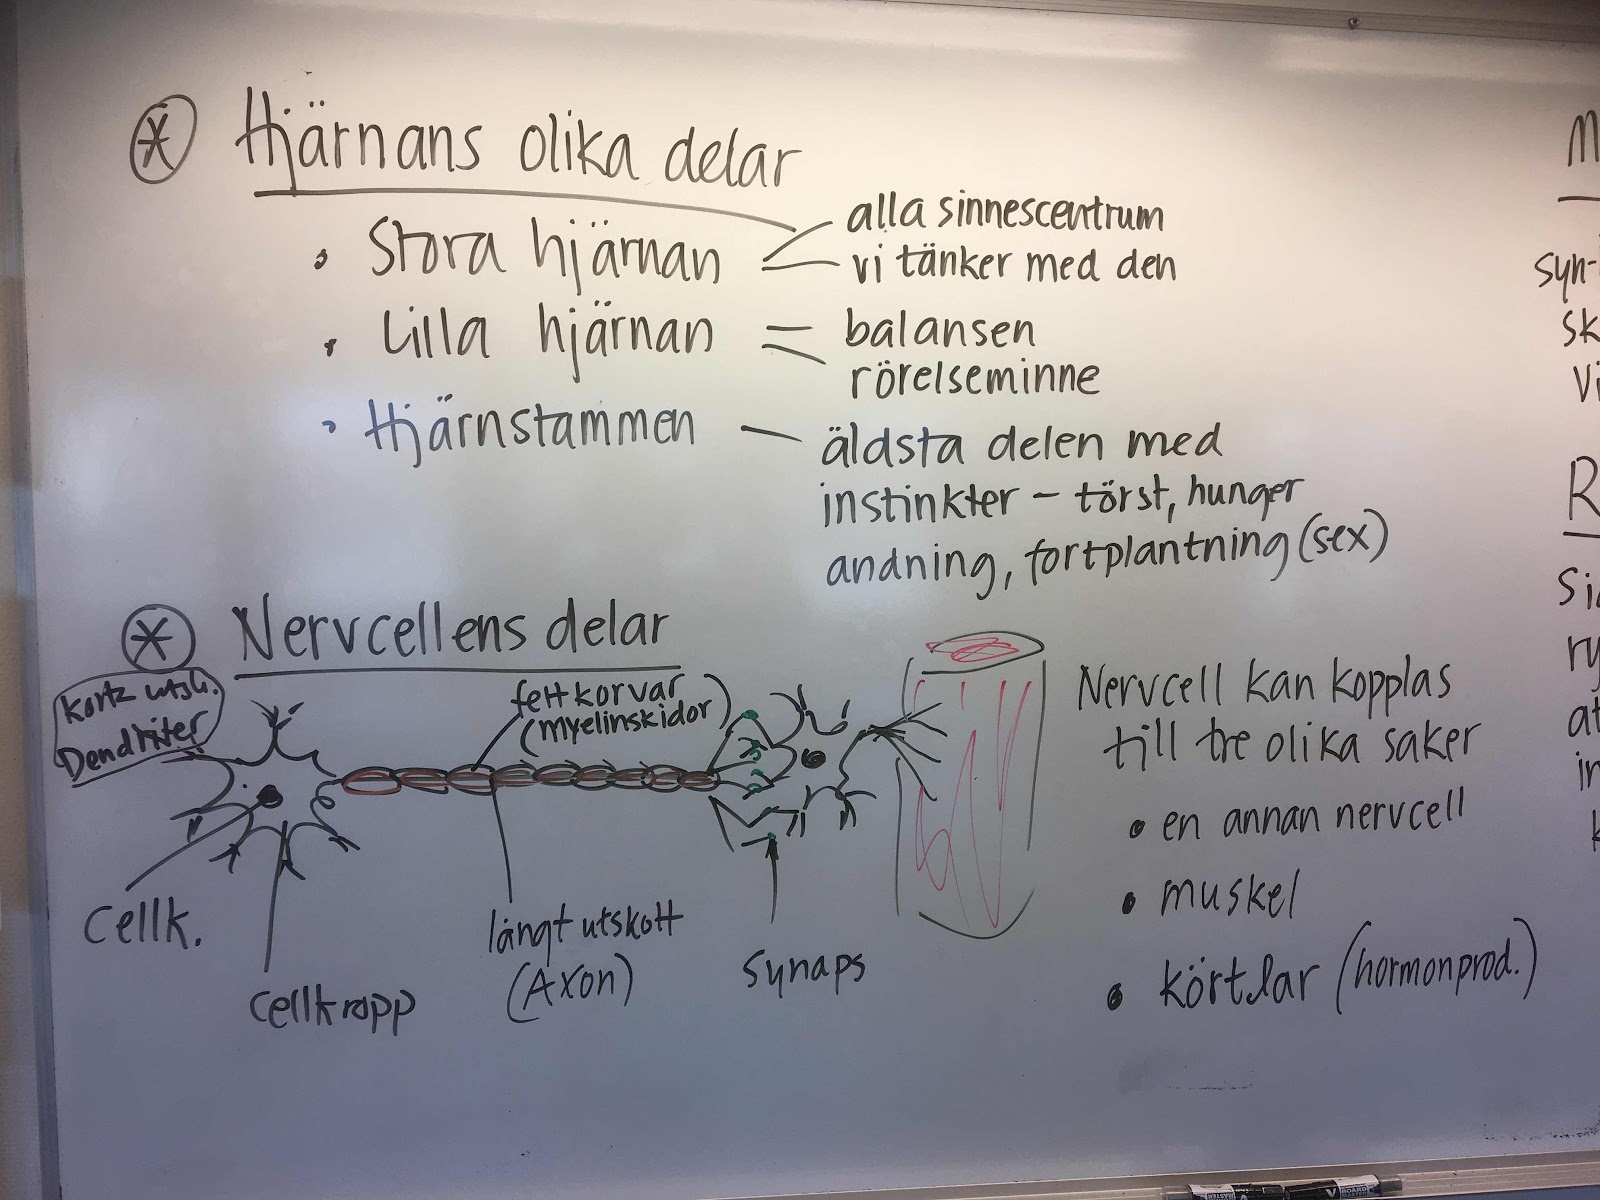 Hjärnans olika delar
• Stora hjärnan
alla sinnescentrum
vi tänker med den
• Lilla hjärnan
balansen
rörelseminne
• Hjärnstammen
äldsta delen med
instinkter - törst, hunger
andning, fortplantning (sex)
Nervcellens delar
Dendriter
fettkorvar
(myelinskidor)
Cellk.
Cellkropp
långt utskott
(Axon)
Synaps
Nervcell kan kopplas
till tre olika saker
• en annan nervcell
• muskel
• körtlar (hormonprod.)
M
syn-
sk
Vi
R
Si
ry
at
in
k